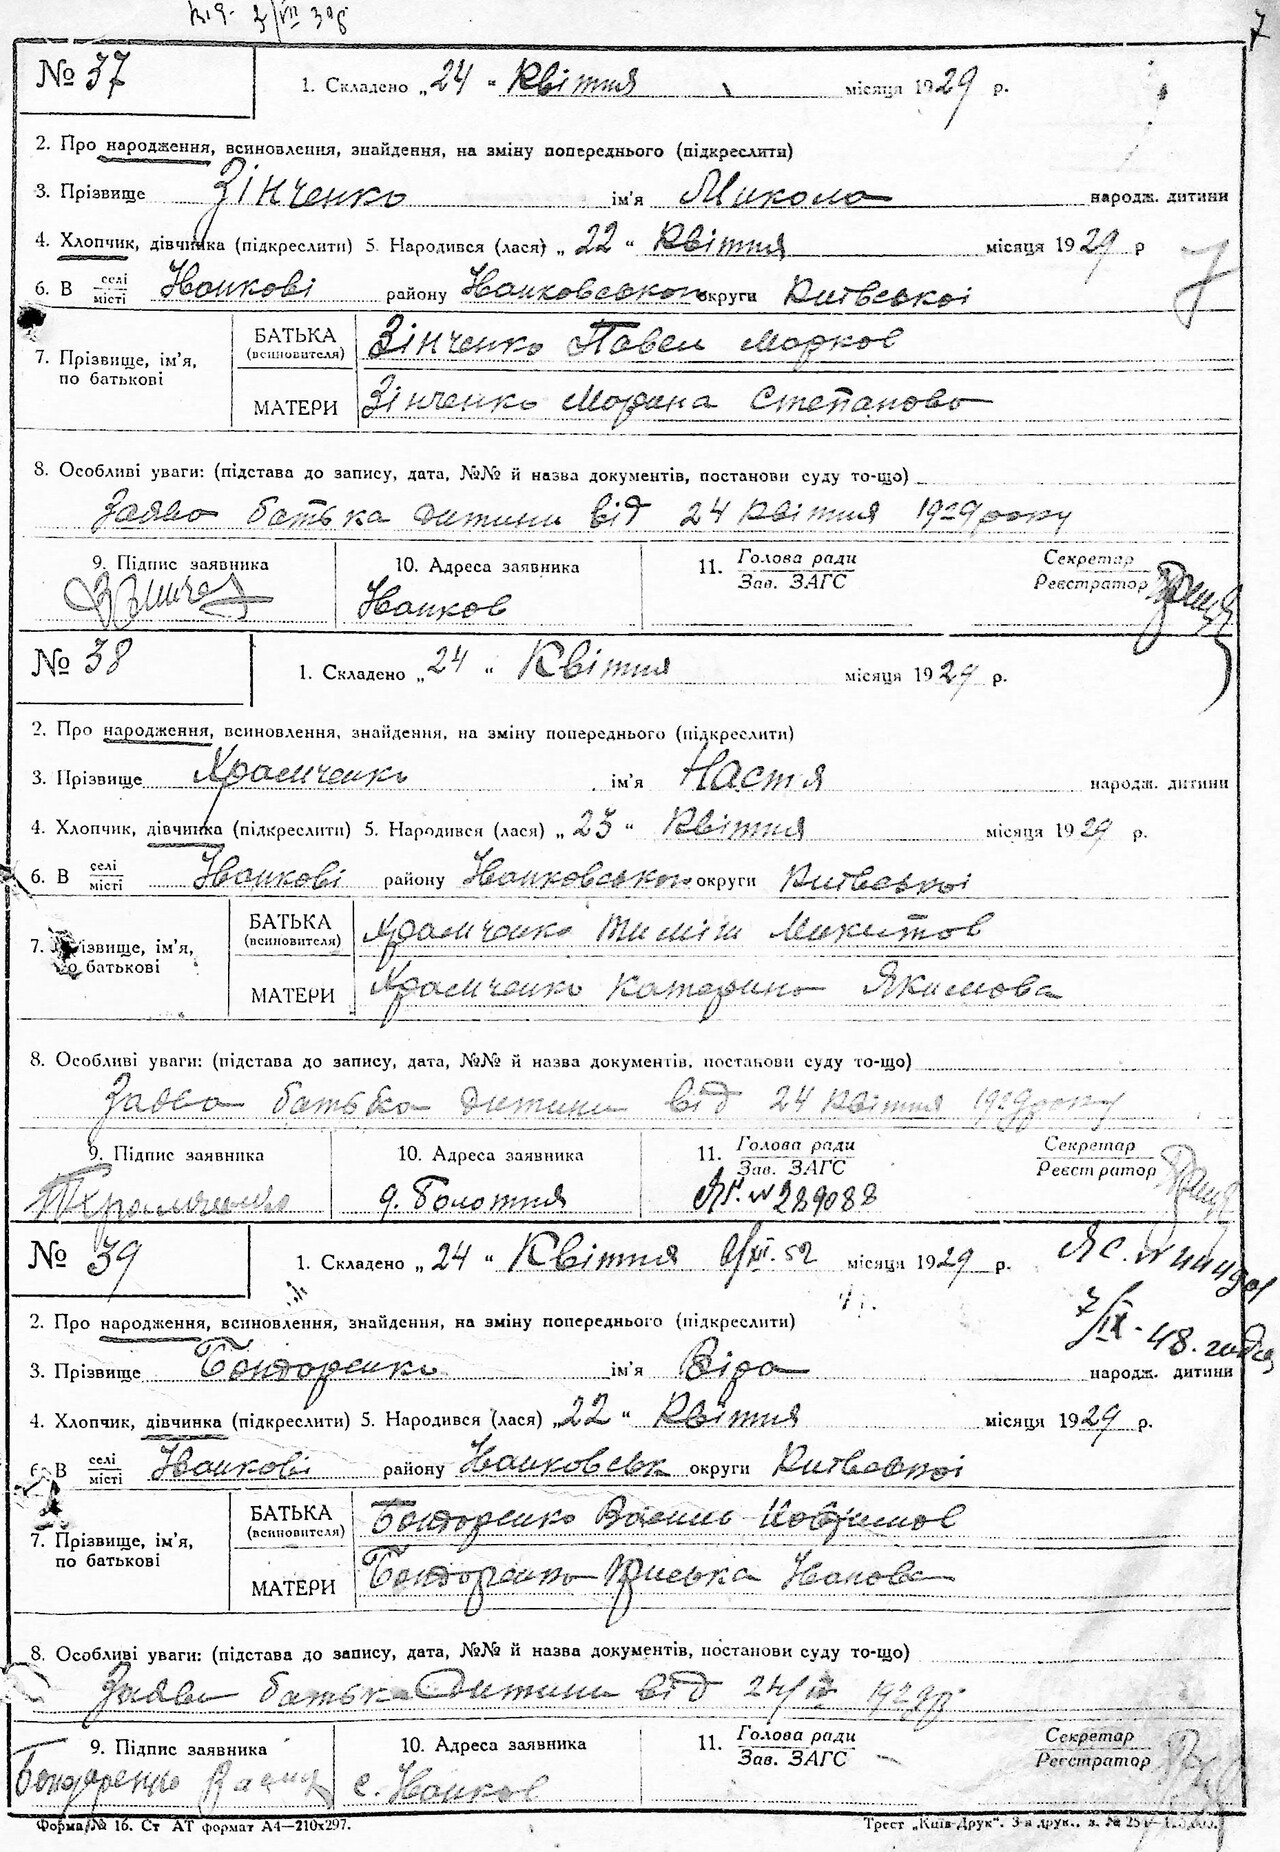 7
№ 37
1. Складено „24“ Квітня місяця 1929 р.
2. Про народження, всиновлення, знайдення, на зміну попереднього (підкреслити)
3. Прізвище Зінченко ім'я Микола народж. дитини
4. Хлопчик, дівчинка (підкреслити) 5. Народився (лася) „22“ Квітня місяця 1929 р
6. В селі місті Іванкові району Іванковського округи Київської
7. Прізвище, ім'я, по батькові
БАТЬКА (всиновителя) Зінченко Павел Марков
МАТЕРИ Зінченко Марина Степанова
8. Особливі уваги: (підстава до запису, дата, №№ й назва документів, постанови суду то-що)
Заява батька дитини від 24 квітня 1929 року
9. Підпис заявника 10. Адреса заявника 11. Голова ради Зав. ЗАГС Секретар Реєстратор
Іванков
№ 38
1. Складено „24“ Квітня місяця 1929 р.
2. Про народження, всиновлення, знайдення, на зміну попереднього (підкреслити)
3. Прізвище Храмченко ім'я Настя народж. дитини
4. Хлопчик, дівчинка (підкреслити) 5. Народився (лася) „23“ Квітня місяця 1929 р.
6. В селі місті Іванкові району Іванковського округи Київської
7. Прізвище, ім'я, по батькові
БАТЬКА (всиновителя) Храмченко Тиміш Микитов
МАТЕРИ Храмченко Катерина Якимова
8. Особливі уваги: (підстава до запису, дата, №№ й назва документів, постанови суду то-що)
Заява батька дитини від 24 квітня 1929 року
9. Підпис заявника 10. Адреса заявника 11. Голова ради Зав. ЗАГС Секретар Реєстратор
Храмченко д. Болотня № 289088
№ 39
1. Складено „24“ Квітня місяця 1929 р.
7/IX-48. года
2. Про народження, всиновлення, знайдення, на зміну попереднього (підкреслити)
3. Прізвище Бондаренко ім'я Віра народж. дитини
4. Хлопчик, дівчинка (підкреслити) 5. Народився (лася) „22“ Квітня місяця 1929 р.
6. В селі місті Іванкові району Іванковськ округи Київської
7. Прізвище, ім'я, по батькові
БАТЬКА (всиновителя) Бондаренко Василь
МАТЕРИ Бондаренко Приська Іванова
8. Особливі уваги: (підстава до запису, дата, №№ й назва документів, постанови суду то-що)
Заява батька дитини від 24/IV 1929р.
9. Підпис заявника 10. Адреса заявника 11. Голова ради Зав. ЗАГС Секретар Реєстратор
Бондаренко с. Іванков
Форма № 16. Ст АТ формат А4—210х297.
Трест „Київ-Друк“. 3-я друк.